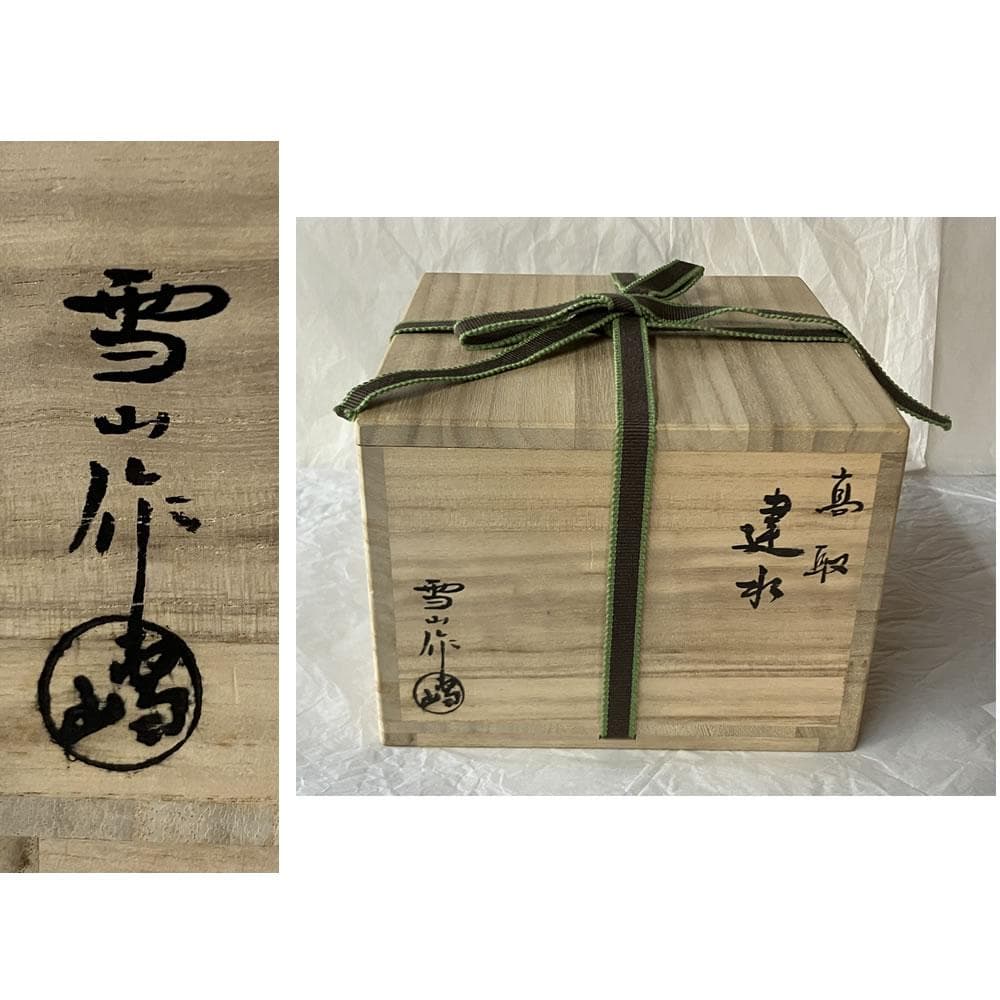 雪山作
嶋
高取
建水
雪山作
嶋